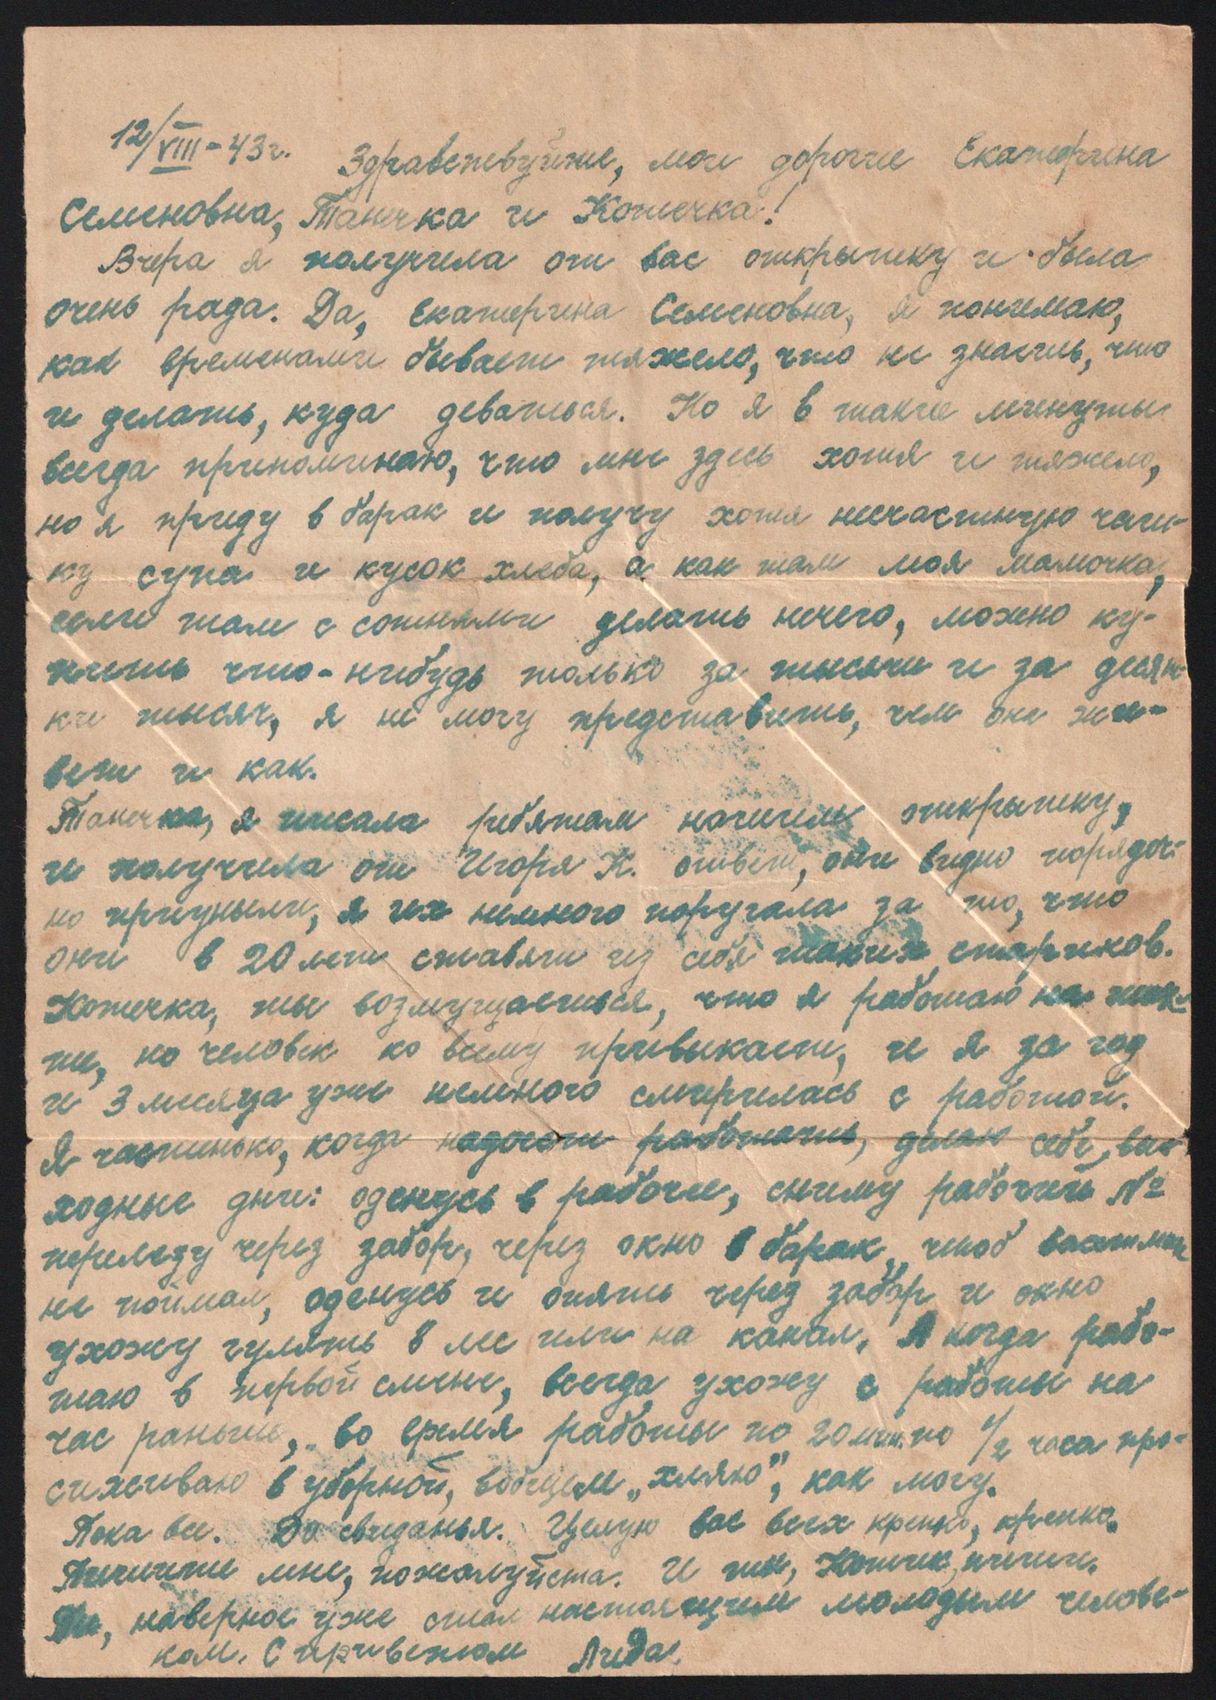 12/VIII-43г. Здравствуйте, мои дорогие Екатерина
Семеновна, Танечка и Котечка!
Вчера я получила от вас открытку и была
очень рада. Да, Екатерина Семеновна, я понимаю,
как временами бывает тяжело, что не знаешь, что
и делать, куда деваться. Но я в такие минуты
всегда припоминаю, что мне здесь хотя и тяжело,
но я приду в барак и получу хотя несчастную чаш-
ку супа и кусок хлеба, а как там моя мамочка,
если там с сотнями делать нечего, можно ку-
пить что-нибудь только за тысячи и за десят-
ки тысяч, я не могу представить, чем она жи-
вет и как.
Танечка, я писала ребятам нашим открытку,
и получила от Игоря К. ответ, они видно порядоч-
но приуныли, я их немного поругала за то, что
они в 20 лет ставят из себя таких стариков.
Котечка, ты возмущаешься, что я работаю на
но человек ко всему привыкает, и я за год
и 3 месяца уже немного смирилась с работой.
Я частенько, когда надоест работать, делаю себе вы-
ходные дни: оденусь в рабочее, сниму рабочий №
перелезу через забор, через окно в барак, чтоб
не поймал, оденусь и опять через забор и окно
ухожу гулять в лес или на канал. А когда рабо-
таю в первой смене, всегда ухожу с работы на
час раньше, во время работы по 20 мин. по 1/2 часа про-
сиживаю в уборной, вобщем „хляю", как могу.
Пока все. До свиданья. Целую вас всех крепко, крепко.
Пишите мне, пожалуйста. И ты, Котик, пиши.
Ты, наверное уже стал настоящим молодым челове-
ком. С приветом Лида.